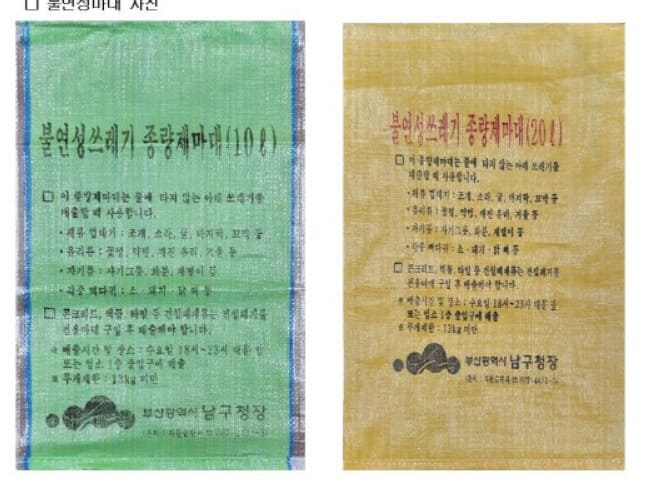 □ 불연성마대 사진
불연성쓰레기 종량제마대(10ℓ)
□ 이 종량제마대는 불에 타지 않는 아래 쓰레기를
배출할 때 사용합니다.
• 패류 껍데기 : 조개, 소라, 굴, 바지락, 꼬막 등
• 유리류 : 꽃병, 약병, 깨진 유리, 거울 등
• 자기류 : 사기그릇, 화분, 재떨이 등
• 각종 뼈다귀 : 소 · 돼지 · 닭 뼈 등
□ 콘크리트, 벽돌, 타일 등 건설폐재류는 건설폐기물
전용마대 구입 후 배출해야 합니다.
※ 배출시간 및 장소 : 수요일 18시~23시 대문 앞
또는 업소 1층 출입구에 배출
※ 무게제한 : 13kg 미만
부산광역시 남구청장
불연성쓰레기 종량제마대(20ℓ)
□ 이 종량제마대는 불에 타지 않는 아래 쓰레기를
배출할 때 사용합니다.
• 패류 껍데기 : 조개, 소라, 굴, 바지락, 꼬막 등
• 유리류 : 꽃병, 약병, 깨진 유리, 거울 등
• 자기류 : 사기그릇, 화분, 재떨이 등
• 각종 뼈다귀 : 소 · 돼지 · 닭 뼈 등
□ 콘크리트, 벽돌, 타일 등 건설폐재류는 건설폐기물
전용마대 구입 후 배출해야 합니다.
※ 배출시간 및 장소 : 수요일 18시~23시 대문 앞
또는 업소 1층 출입구에 배출
※ 무게제한 : 13kg 미만
부산광역시 남구청장